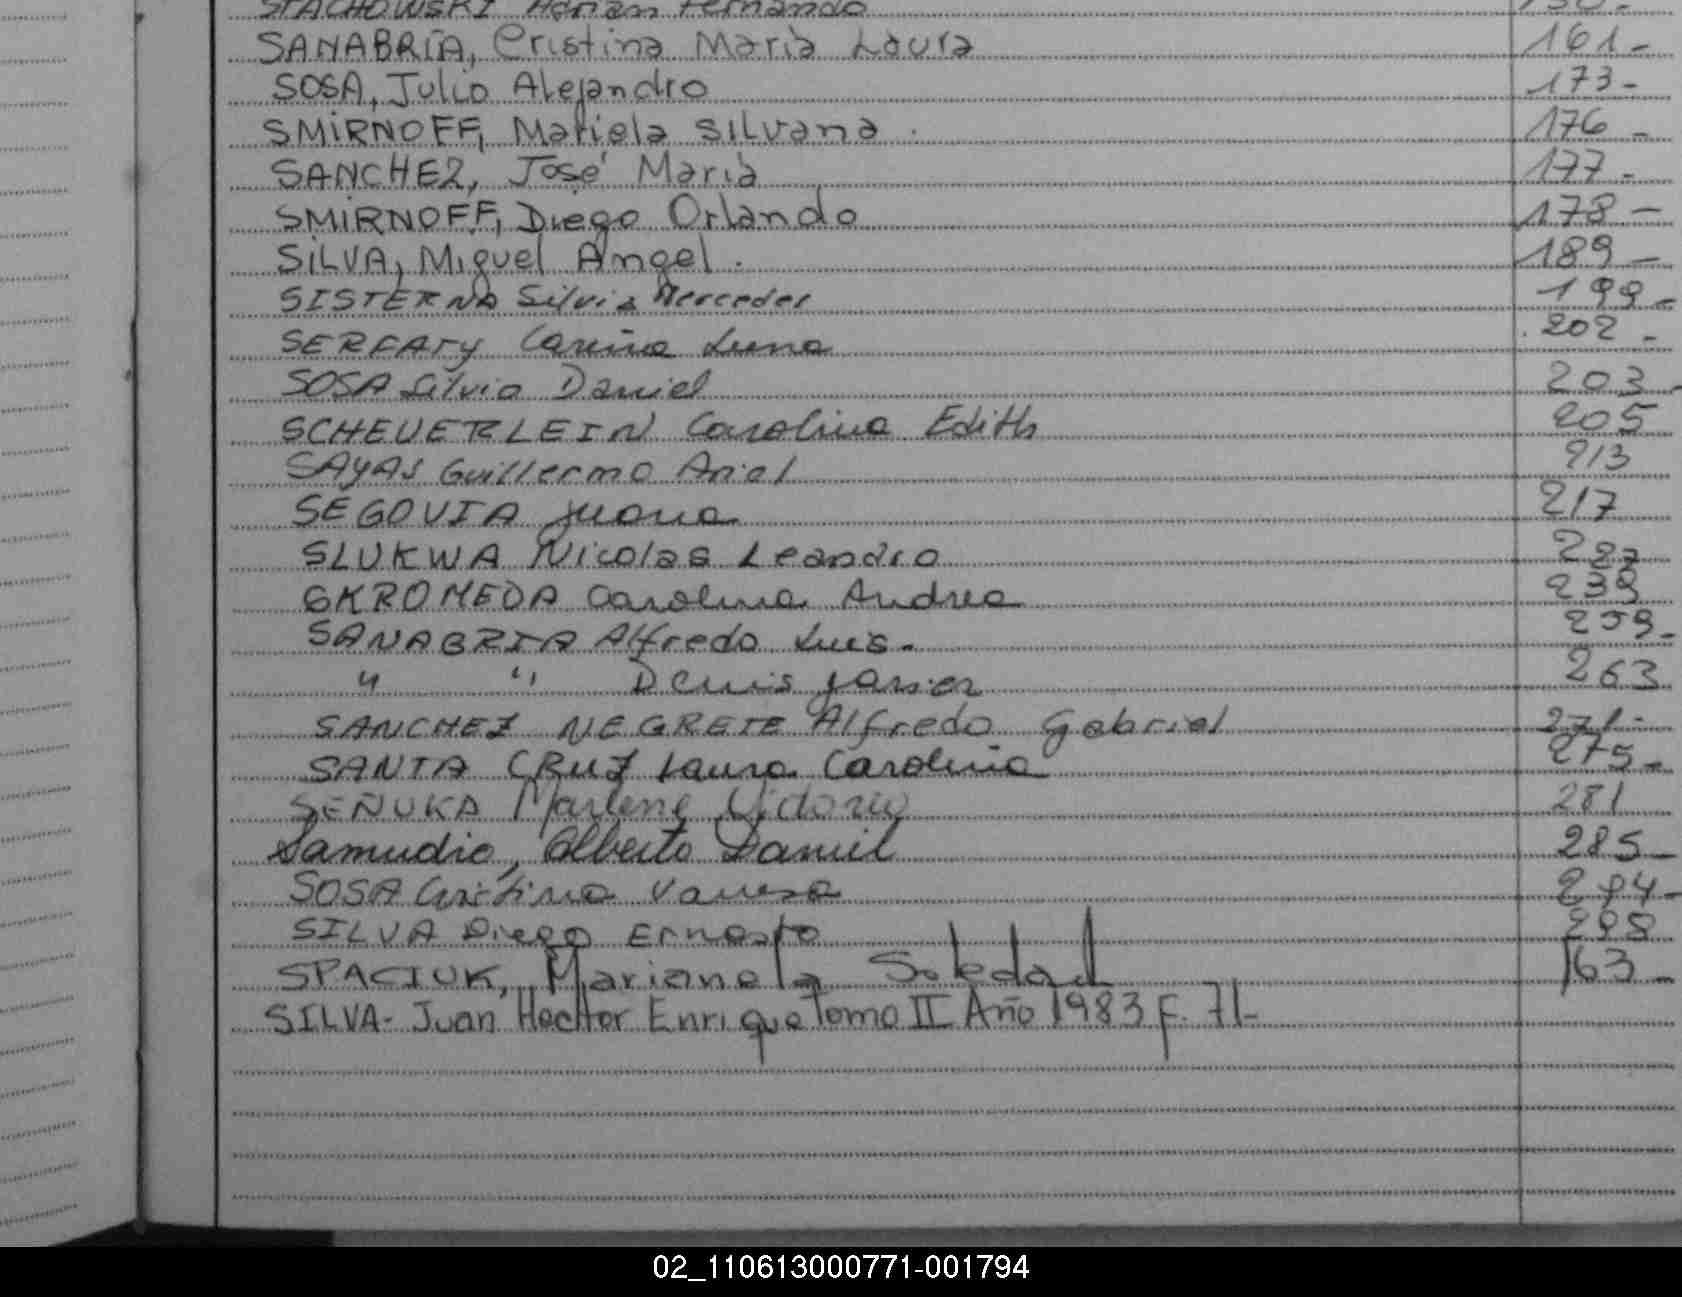 STACHOWSKI Adrian Fernando
SANABRIA, Cristina Maria Laura 161-
SOSA, Julio Alejandro 173-
SMIRNOFF, Mariela SILVANA. 176-
SANCHEZ, José Maria 177-
SMIRNOFF, Diego Orlando 178-
SILVA, Miguel Angel. 189-
SISTERNA Silvia Mercedes 199-
SERFATY Luna 202-
SOSA Silvio Daniel 203-
SCHEUERLEIN Carolina Edith 205
SAYAS Guillermo Ariel 213
SEGOVIA Juana 217
SLUKWA Nicolas Leandro
SKROMEDA Carolina Andrea 239
SANABRIA Alfredo Luis. 259-
" " Denis Javier 263
SANCHEZ NEGRETE Alfredo Gabriel 271-
SANTA CRUZ Laura Carolina 275-
SEÑUKA Marlene Victoria 281
Samudio, Alberto Daniel 285-
SOSA Cristina Vanesa 294-
SILVA Diego Ernesto 298
SPACIUK, Marianela Soledad 163-
SILVA- Juan Hector Enrique Tomo II Año 1983 F. 71-
02_110613000771-001794